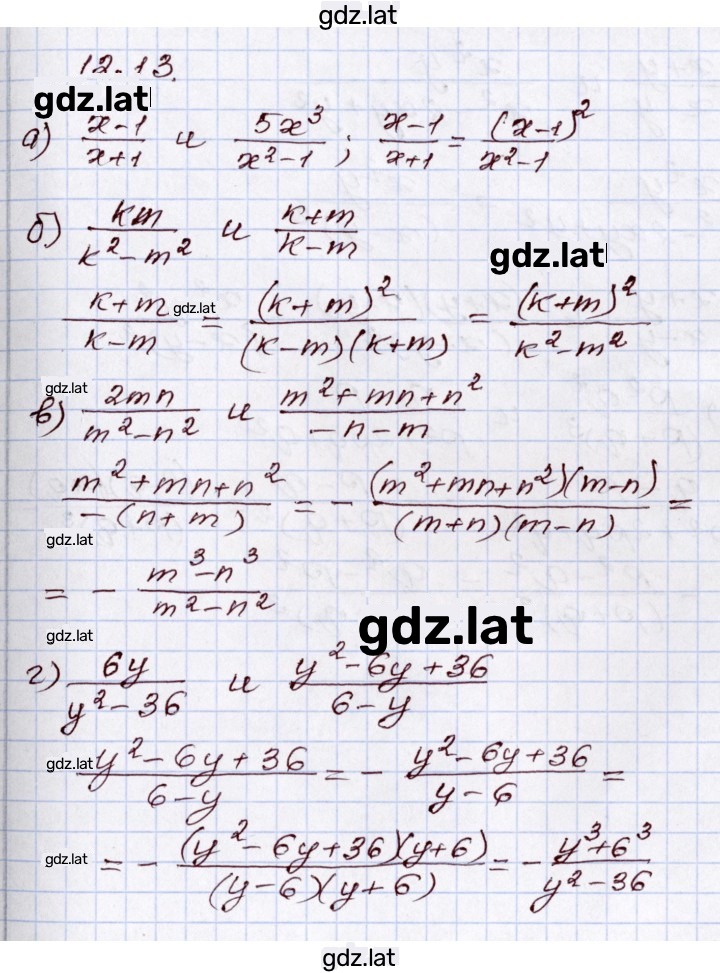 gdz.lat
12.13.
gdz.lat
а) (x-1)/(x+1) и 5x³/(x²-1) ; (x-1)/(x+1) = (x-1)²/(x²-1)
б) km/(k²-m²) и (k+m)/(k-m)
gdz.lat
(k+m)/(k-m) gdz.lat = (k+m)²/((k-m)(k+m)) = (k+m)²/(k²-m²)
gdz.lat
в) 2mn/(m²-n²) и (m²+mn+n²)/(-n-m)
(m²+mn+n²)/(-(n+m)) = - ((m²+mn+n²)(m-n))/((m+n)(m-n)) =
gdz.lat
= - (m³-n³)/(m²-n²)
gdz.lat
gdz.lat
г) 6y/(y²-36) и (y²-6y+36)/(6-y)
gdz.lat (y²-6y+36)/(6-y) = - (y²-6y+36)/(y-6) =
gdz.lat = - ((y²-6y+36)(y+6))/((y-6)(y+6)) = - (y³+6³)/(y²-36)
gdz.lat